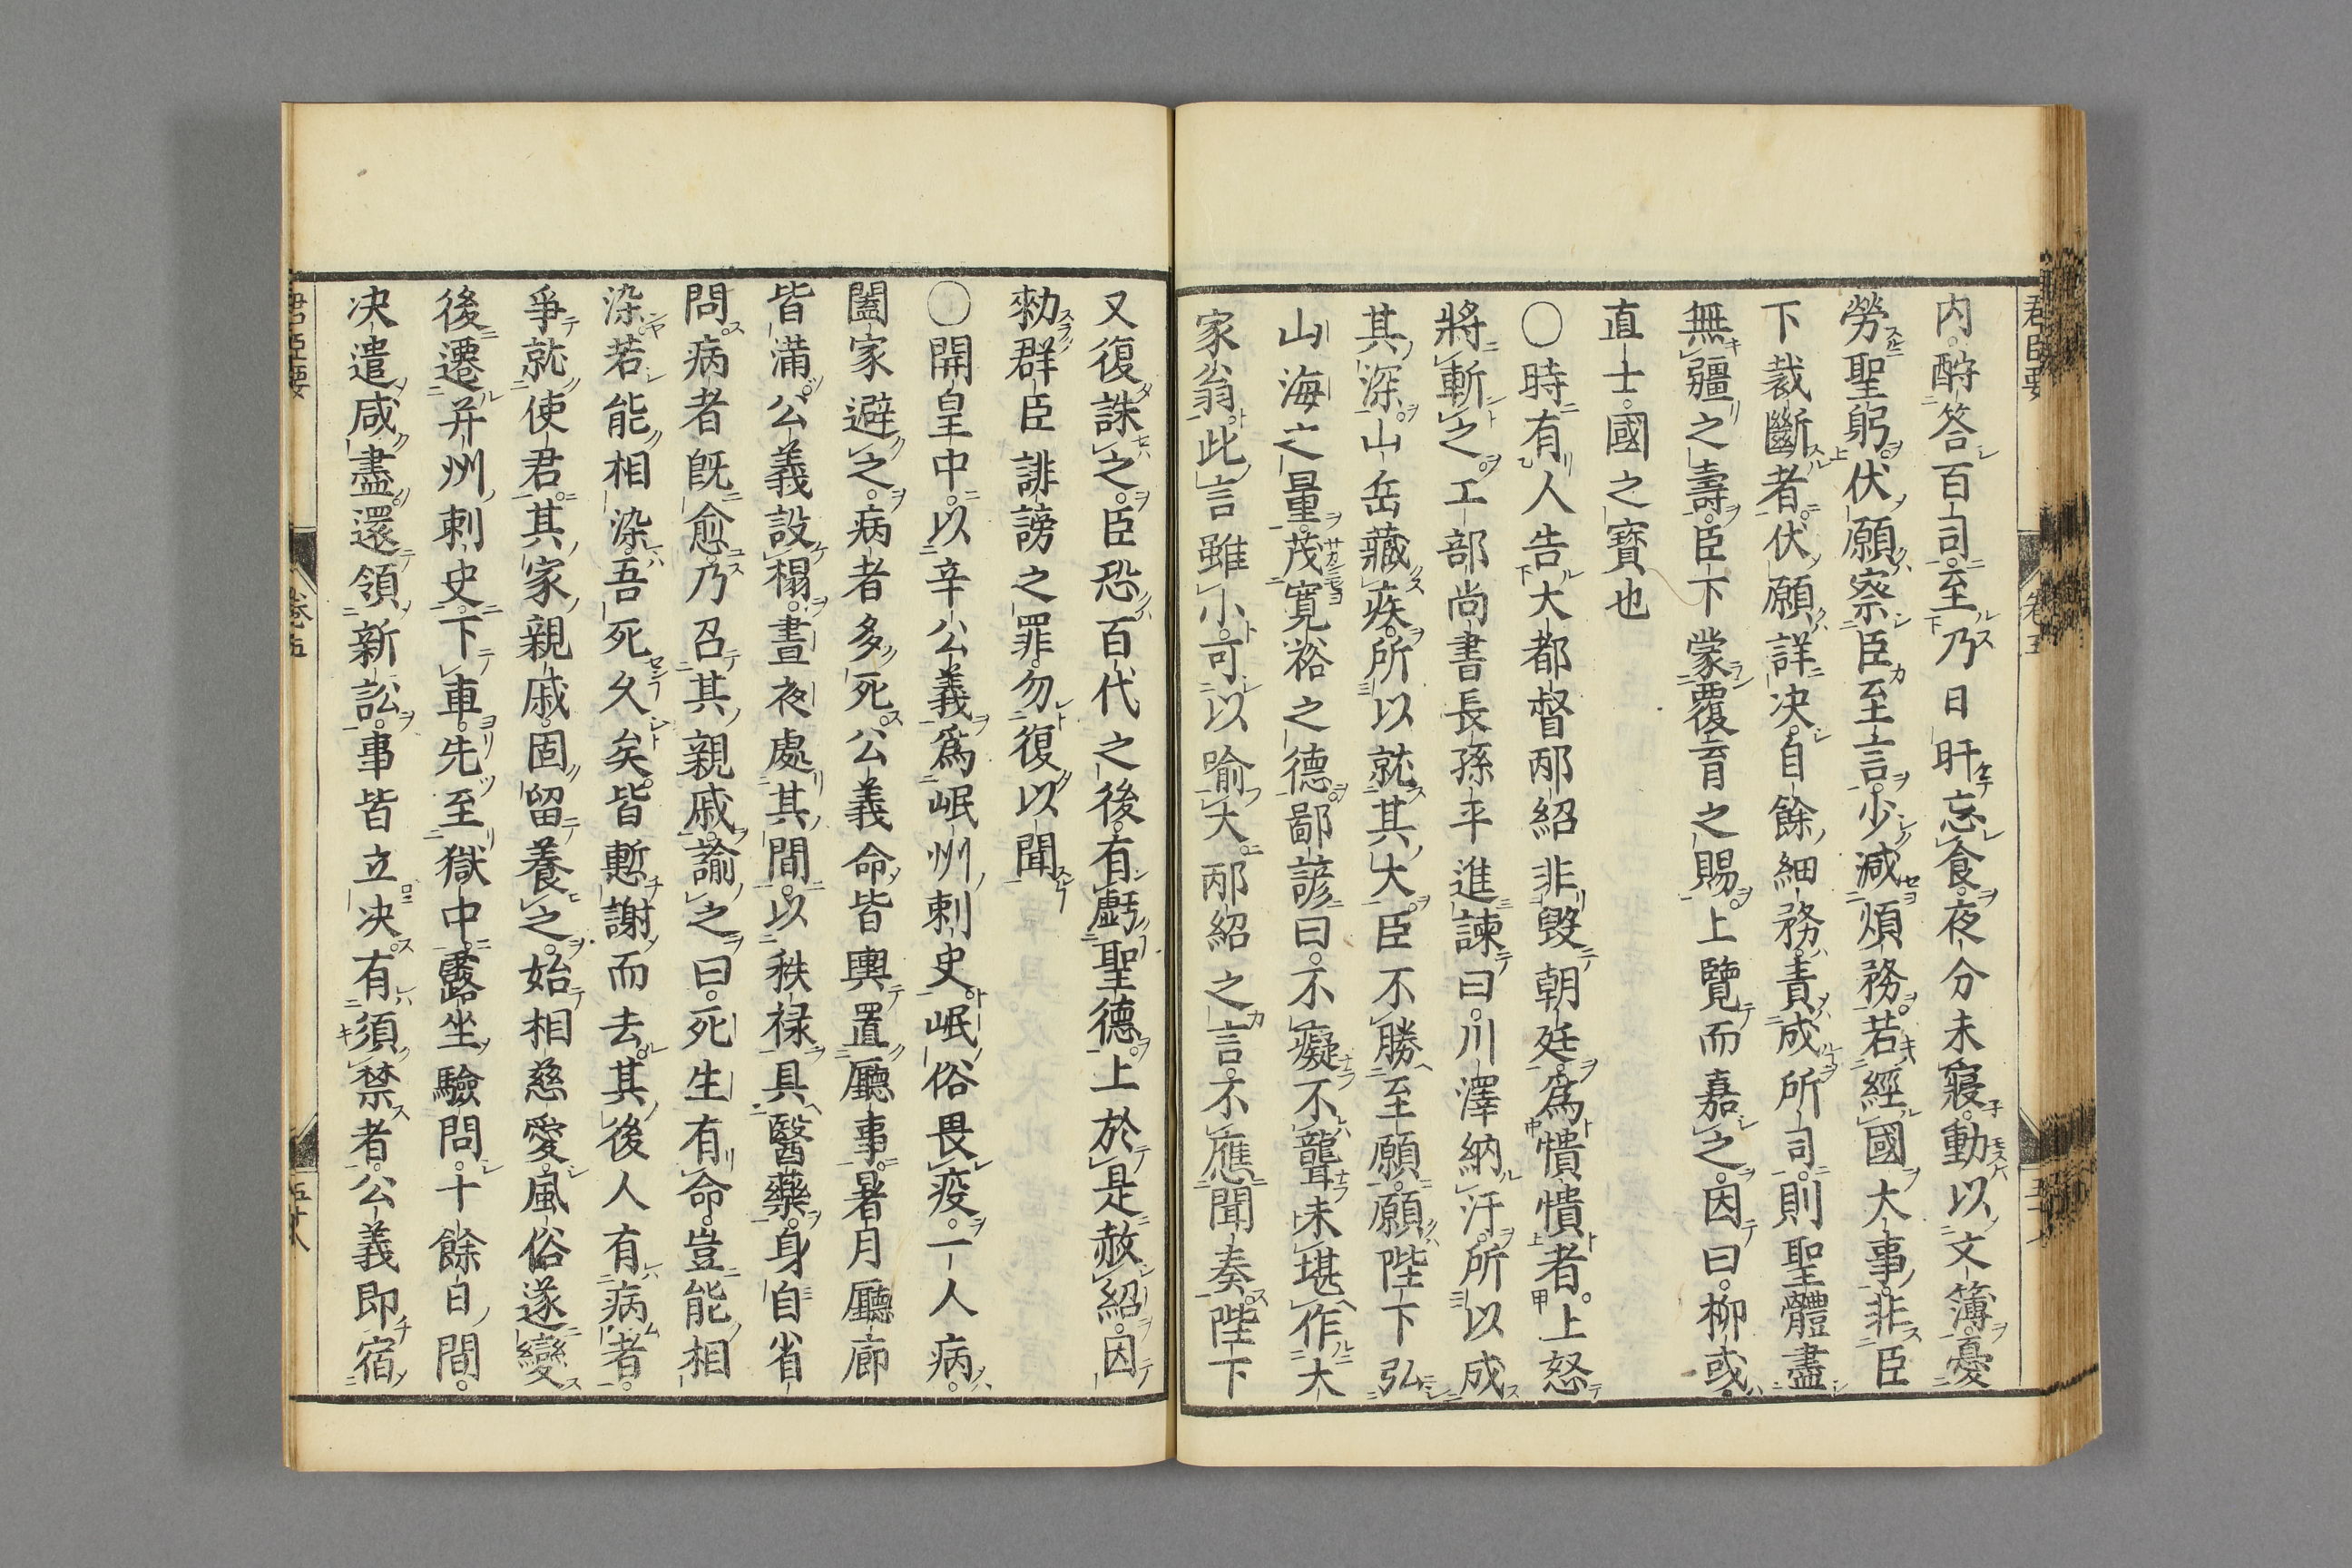 内酧答百司至乃日旰忘食夜分未寢動以文簿憂
勞聖躬伏願察臣至言少減煩務若經國大事非臣
下裁斷者伏願詳決自餘細務責成所司則聖體盡
無疆之壽臣下蒙覆育之賜上覽而嘉之因曰柳彧
直士國之寶也
〇時有人告大都督邴紹非毀朝廷爲憒憒者上怒
將斬之工部尚書長孫平進諫曰川澤納汙所以成
其深山岳藏疾所以就其大臣不勝至願願陛下弘
山海之量茂寬裕之德鄙諺曰不癡不聾未堪作大
家翁此言雖小可以喻大邴紹之言不應聞奏陛下
又復誅之臣恐百代之後有虧聖德上於是赦紹因
勑群臣誹謗之罪勿復以聞
〇開皇中以辛公義爲岷州刺史岷俗畏疫一人病
闔家避之病者多死公義命皆輿置廳事暑月廳廊
皆滿公義設榻晝夜處其間以秩禄具醫藥身自省
問病者旣愈乃召其親戚諭之曰死生有命豈能相
染若能相染吾死久矣皆慙謝而去其後人有病者
爭就使君其家親戚固留養之始相慈愛風俗遂變
後遷并州刺史下車先至獄中露坐驗問十餘日間
决遣咸盡還領新訟事皆立决有須禁者公義即宿